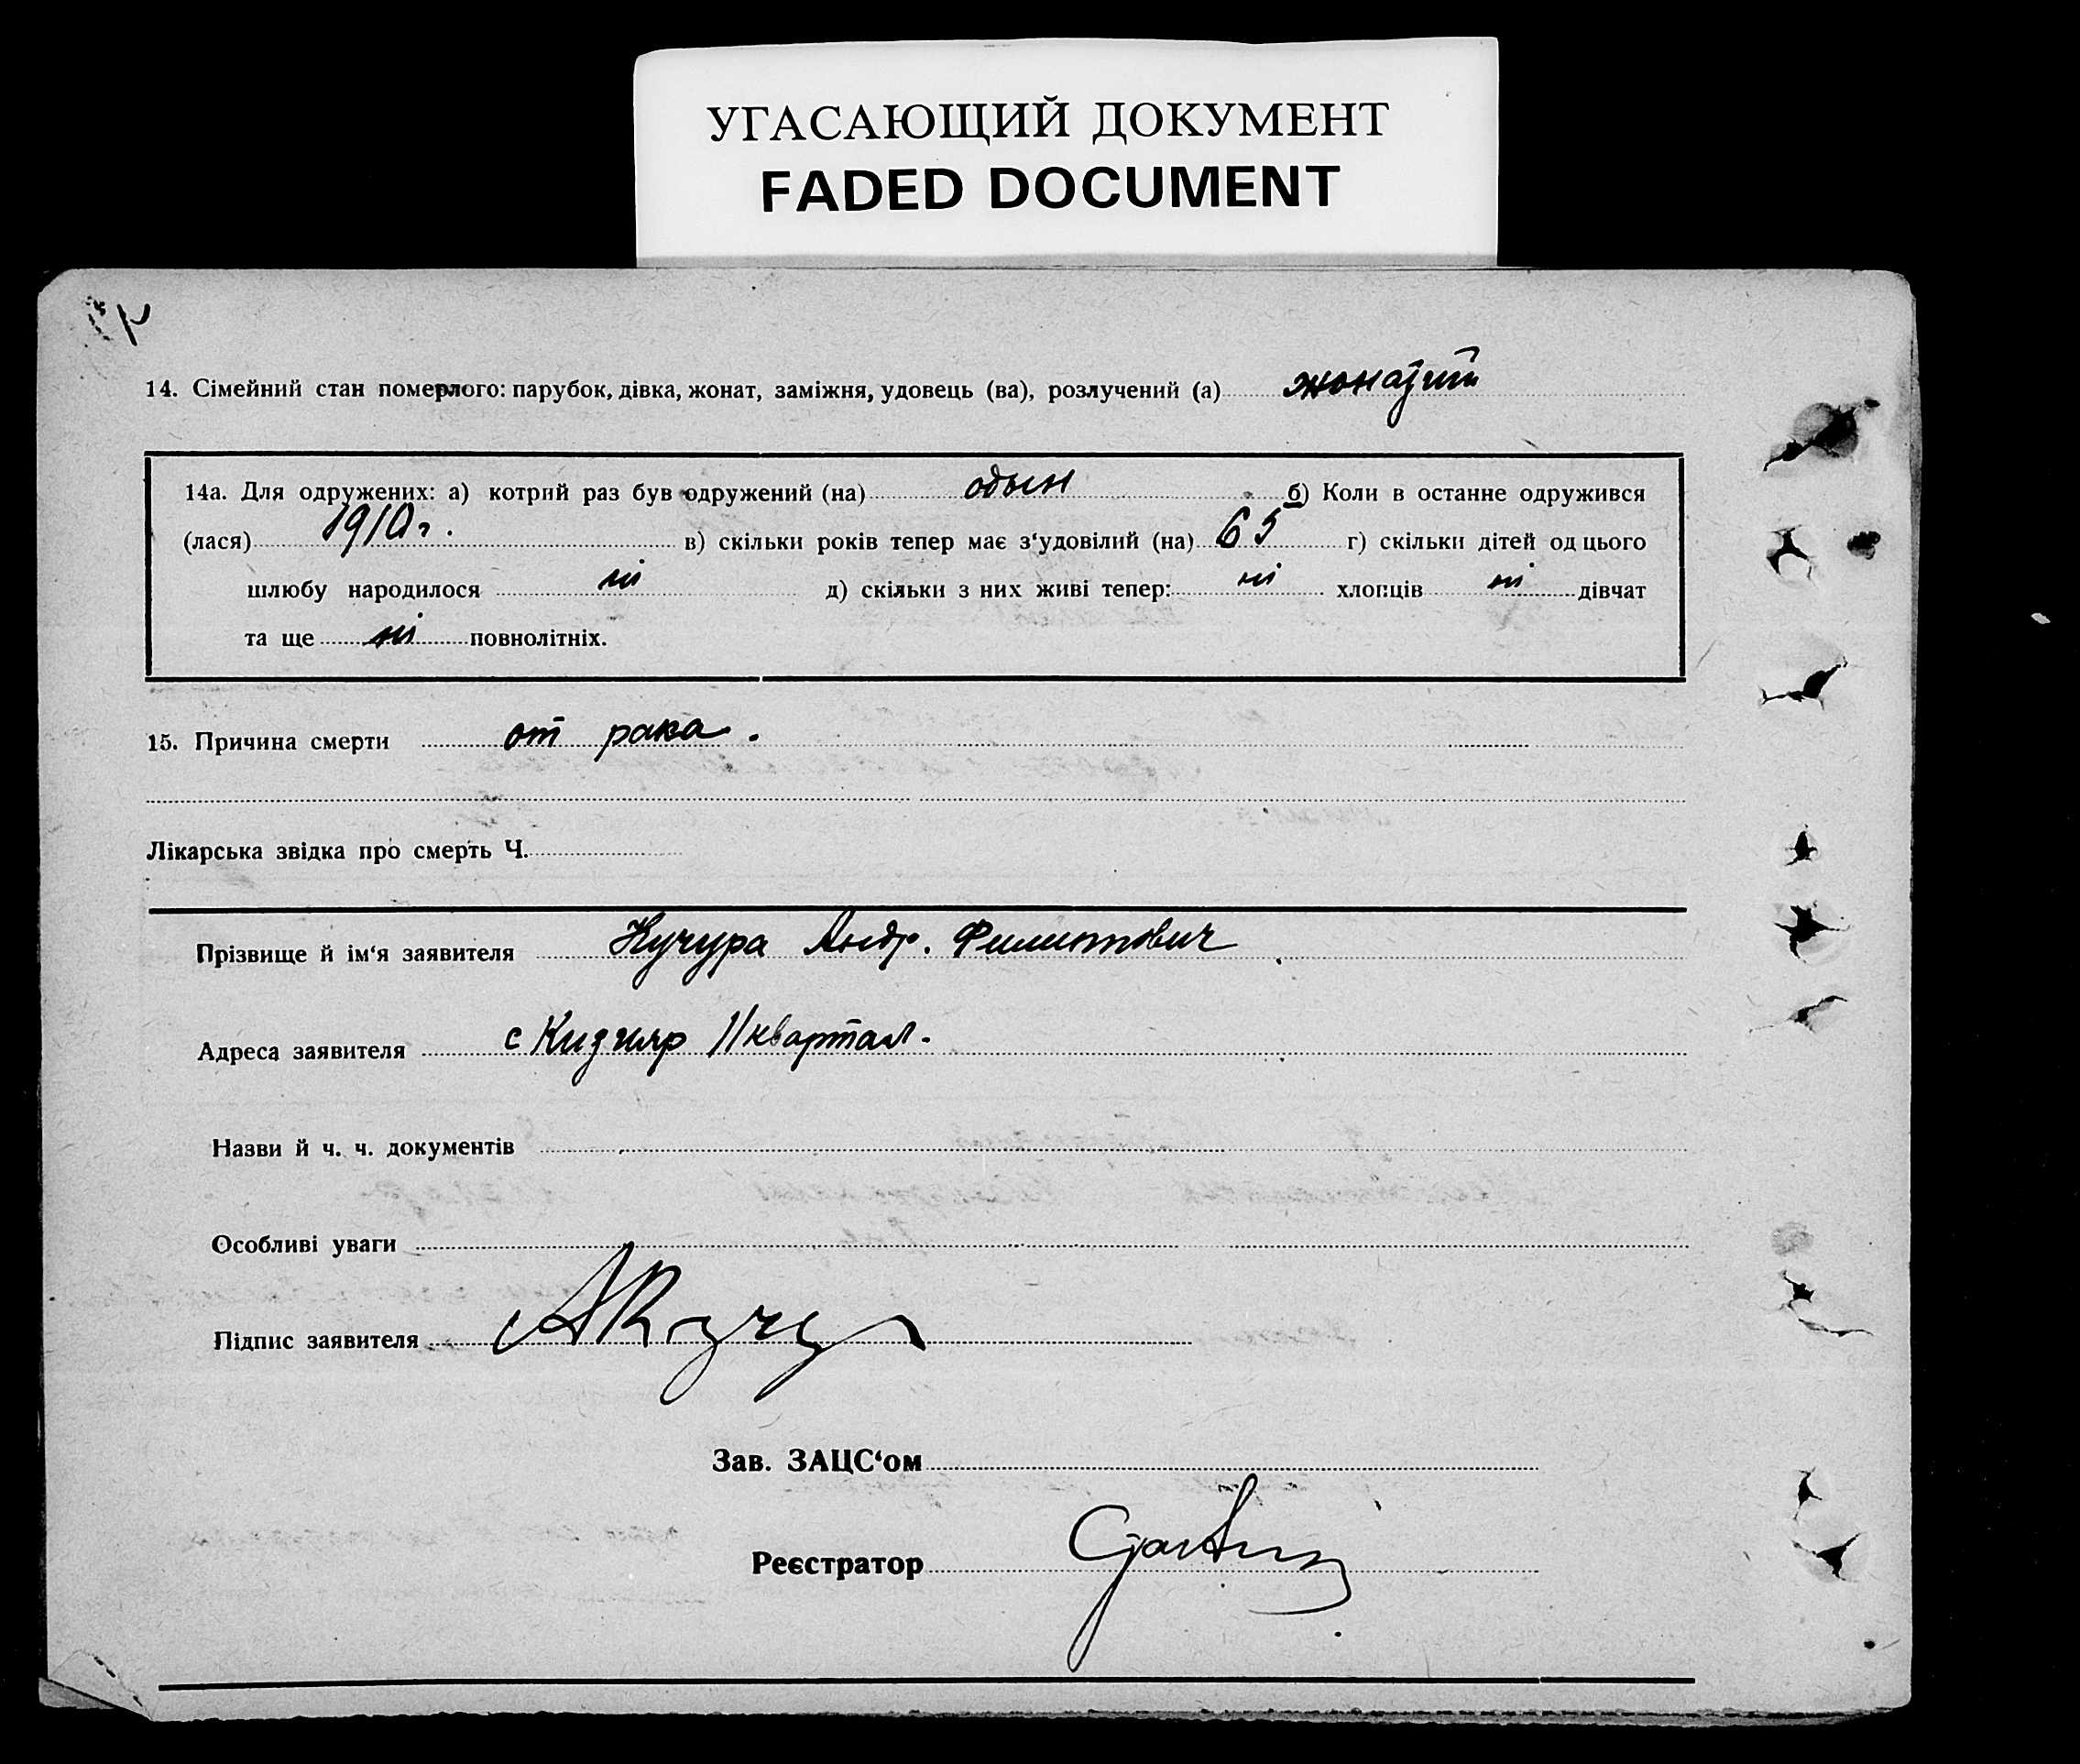 УГАСАЮЩИЙ ДОКУМЕНТ
FADED DOCUMENT
14. Сімейний стан померлого: парубок, дівка, жонат, заміжня, удовець (ва), розлучений (а) жонатий
14а. Для одружених: а) котрий раз був одружений (на) одын б) Коли в останне одружився
(лася) 1910 г. в) скільки років тепер має з‘удовілий (на) 65 г) скільки дітей од цього
шлюбу народилося ні д) скільки з них живі тепер: ні хлопців ні дівчат
та ще ні повнолітніх.
15. Причина смерти от рака.
Лікарська звідка про смерть Ч.
Прізвище й ім‘я заявителя Кучура Андр. Филиппович
Адреса заявителя с Кизияр II квартал.
Назви й ч. ч. документів
Особливі уваги
Підпис заявителя АКучу
Зав. ЗАЦС‘ом
Реєстратор